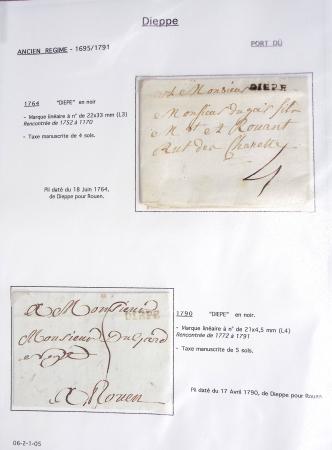 Dieppe
ANCIEN REGIME - 1695/1791
PORT DÛ
1764 "DIEPE" en noir
- Marque linéaire à n° de 22x33 mm (L3)
Rencontrée de 1752 à 1770
- Taxe manuscrite de 4 sols.
Pli daté du 18 Juin 1764,
de Dieppe pour Rouen.
Monsieur DIEPE
Monsieur dugard fils
Rouen
4
1790 "DIEPE" en noir.
- Marque linéaire à n° de 21x4,5 mm (L4)
Rencontrée de 1772 à 1791
- Taxe manuscrite de 5 sols.
Pli daté du 17 Avril 1790, de Dieppe pour Rouen.
DIEPE
a Monsieur
Monsieur DuGard
a Rouen
06-2-1-05